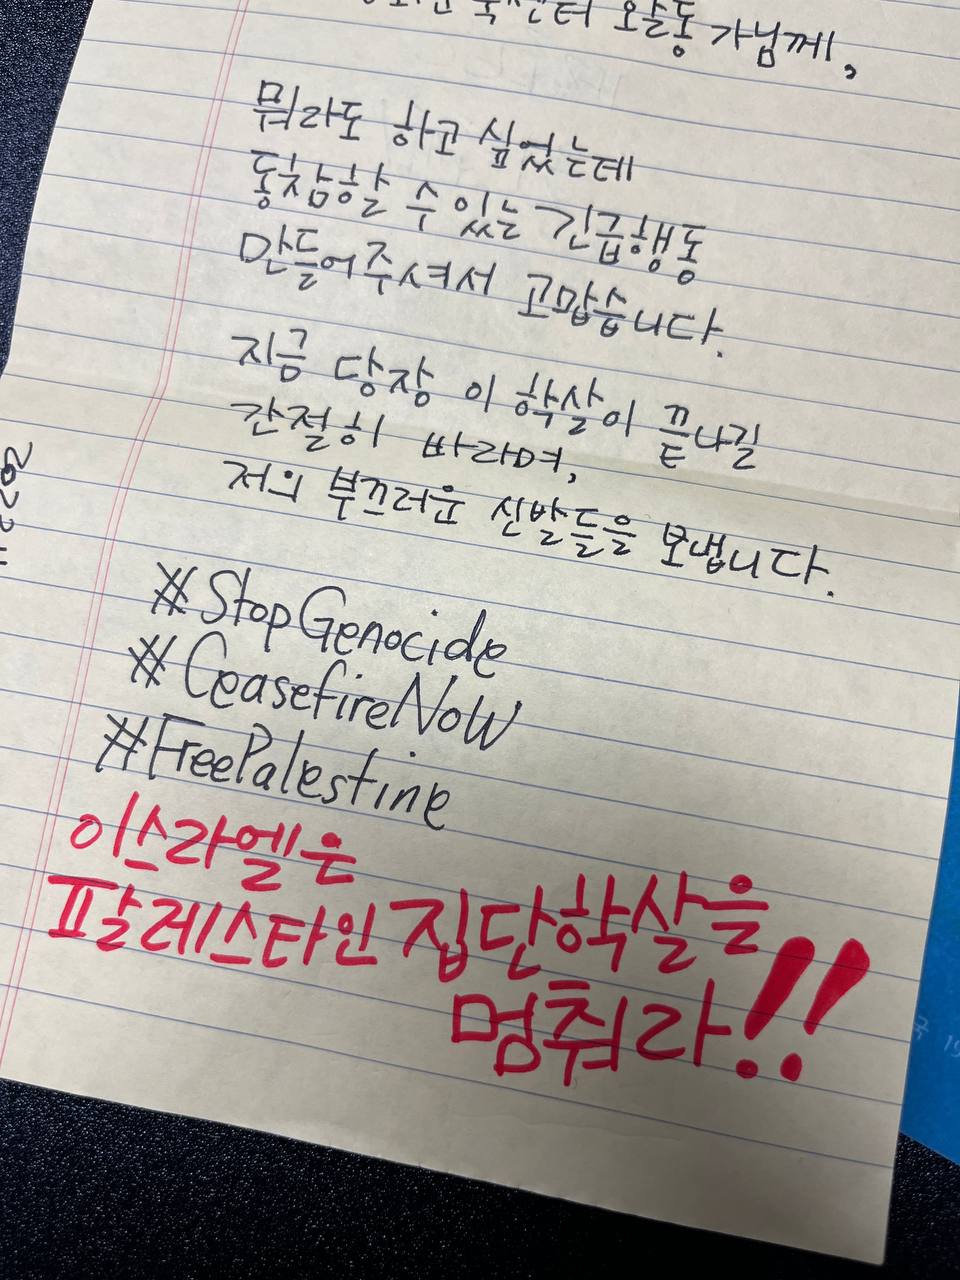 활동가님께,
뭐라도 하고 싶었는데
동참할 수 있는 긴급행동
만들어주셔서 고맙습니다.
지금 당장 이 학살이 끝나길
간절히 바라며,
저의 부끄러운 신발들을 보냅니다.
#StopGenocide
#CeasefireNow
#FreePalestine
이스라엘은
팔레스타인 집단학살을
멈춰라!!